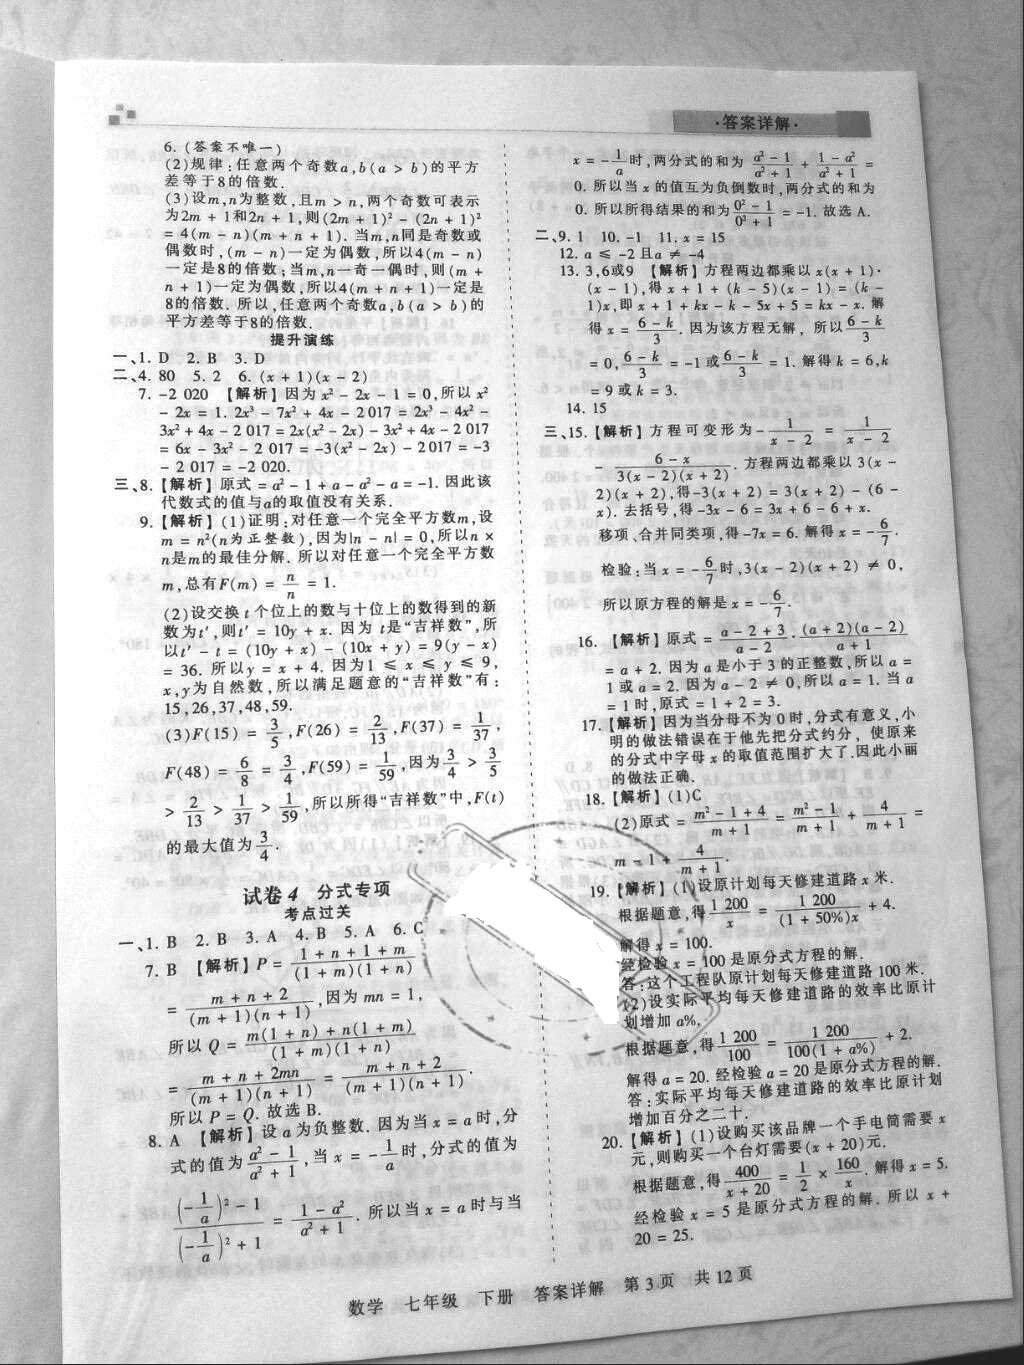 ·答案详解·
6. (答案不唯一)
(2)规律:任意两个奇数a,b(a > b)的平方
差等于8的倍数.
(3)设m,n为整数,且m > n,两个奇数可表示
为2m + 1和2n + 1,则(2m + 1)² - (2n + 1)²
= 4(m - n)(m + n + 1). 当m,n同是奇数或
偶数时,(m - n)一定为偶数,所以4(m - n)
一定是8的倍数;当m,n一奇一偶时,则(m +
n + 1)一定为偶数,所以4(m + n + 1)一定是
8的倍数. 所以,任意两个奇数a,b(a > b)的
平方差等于8的倍数.
提升演练
一、1. D 2. B 3. D
二、4. 80 5. 2 6. (x + 1)(x - 2)
7. -2 020 【解析】因为x² - 2x - 1 = 0,所以x²
- 2x = 1. 2x³ - 7x² + 4x - 2 017 = 2x³ - 4x² -
3x² + 4x - 2 017 = 2x(x² - 2x) - 3x² + 4x - 2 017
= 6x - 3x² - 2 017 = -3(x² - 2x) - 2 017 = -3
- 2 017 = -2 020.
三、8.【解析】原式 = a² - 1 + a - a² - a = -1. 因此该
代数式的值与a的取值没有关系.
9.【解析】(1)证明:对任意一个完全平方数m,设
m = n²(n为正整数),因为|n - n| = 0,所以n ×
n是m的最佳分解. 所以对任意一个完全平方数
m,总有F(m) = n/n = 1.
(2)设交换 t 个位上的数与十位上的数得到的新
数为t′,则t′ = 10y + x. 因为 t是“吉祥数”,所
以t′ - t = (10y + x) - (10x + y) = 9(y - x)
= 36. 所以y = x + 4. 因为1 ≤ x ≤ y ≤ 9,
x,y为自然数,所以满足题意的“吉祥数”有:
15,26,37,48,59.
(3)F(15) = 3/5,F(26) = 2/13,F(37) = 1/37,
F(48) = 6/8 = 3/4,F(59) = 1/59,因为3/4 > 3/5
> 2/13 > 1/37 > 1/59,所以所得“吉祥数”中,F(t)
的最大值为3/4.
试卷 4 分式专项
考点过关
一、1. B 2. B 3. A 4. B 5. A 6. C
7. B 【解析】P = (1 + n + 1 + m)/((1 + m)(1 + n))
= (m + n + 2)/((m + 1)(n + 1)),因为 mn = 1,
所以 Q = (m(1 + n) + n(1 + m))/((1 + m)(1 + n))
= (m + n + 2mn)/((m + 1)(n + 1)) = (m + n + 2)/((m + 1)(n + 1)).
所以 P = Q. 故选 B.
8. A 【解析】设 a 为负整数. 因为当 x = a 时,分
式的值为(a² - 1)/(a² + 1),当 x = -1/a 时,分式的值为
((-1/a)² - 1)/((-1/a)² + 1) = (1 - a²)/(a² + 1). 所以当 x = a 时与当
x = -1/a时,两分式的和为 (a² - 1)/(a² + 1) + (1 - a²)/(a² + 1) =
0. 所以当 x 的值互为负倒数时,两分式的和为
0. 所以所得结果的和为(0² - 1)/(0² + 1) = -1. 故选 A.
二、9. 1 10. -1 11. x = 15
12. a ≤ -2且a ≠ -4
13. 3,6或9 【解析】方程两边都乘以 x(x + 1)·
(x - 1),得 x + 1 + (k - 5)(x - 1) = (k -
1)x,即 x + 1 + kx - k - 5x + 5 = kx - x. 解
得 x = (6 - k)/3. 因为该方程无解, 所以(6 - k)/3
= 0,(6 - k)/3 = -1或(6 - k)/3 = 1. 解得 k = 6,k
= 9 或 k = 3.
14. 15
三、15.【解析】方程可变形为 -1/(x - 2) = 1/(x - 2)
- (6 - x)/(3(x - 2)(x + 2)). 方程两边都乘以 3(x -
2)(x + 2),得-3(x + 2) = 3(x + 2) - (6 -
x). 去括号,得-3x - 6 = 3x + 6 - 6 + x.
移项、合并同类项,得-7x = 6. 解得 x = -6/7.
检验:当 x = -6/7时,3(x - 2)(x + 2) ≠ 0,
所以原方程的解是 x = -6/7.
16. 【解析】原式 = (a - 2 + 3)/(a - 2) · ((a + 2)(a - 2))/(a + 1)
= a + 2. 因为 a 是小于 3 的正整数,所以 a =
1 或 a = 2. 因为 a - 2 ≠ 0,所以 a = 1. 当 a
= 1 时,原式 = 1 + 2 = 3.
17.【解析】因为当分母不为 0 时,分式有意义,小
明的做法错误在于他先把分式约分, 使原来
的分式中字母 x 的取值范围扩大了.因此小丽
的做法正确.
18. 【解析】(1)C
(2)原式 = (m² - 1 + 4)/(m + 1) = (m² - 1)/(m + 1) + 4/(m + 1) =
m - 1 + 4/(m + 1).
19. 【解析】(1)设原计划每天修建道路 x 米.
根据题意,得 1 200/x = 1 200/((1 + 50%)x) + 4.
解得 x = 100.
经检验 x = 100 是原分式方程的解.
答:这个工程队原计划每天修建道路 100 米.
(2)设实际平均每天修建道路的效率比原计
划增加 a%,
根据题意,得1 200/100 = 1 200/(100(1 + a%)) + 2.
解得 a = 20. 经检验 a = 20 是原分式方程的解.
答:实际平均每天修建道路的效率比原计划
增加百分之二十.
20. 【解析】(1)设购买该品牌一个手电筒需要 x
元,则购买一个台灯需要(x + 20)元.
根据题意,得400/(x + 20) = 1/2 × 160/x. 解得 x = 5.
经检验 x = 5 是原分式方程的解. 所以 x +
20 = 25.
数学 七年级 下册 答案详解 第 3 页 共 12 页